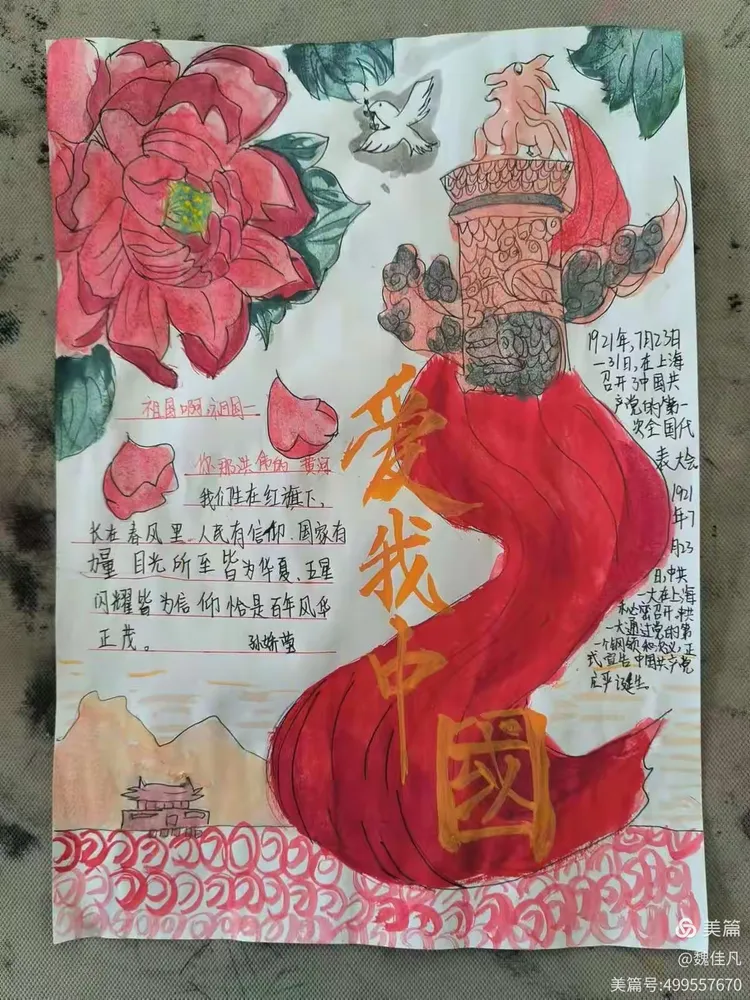 祖国啊,祖国
你那浩
黄河
我们生在红旗下、
长在春风里、人民有信仰、国家有
力量 目光所至皆为华夏、五星
闪耀皆为信仰恰是百年风华
正茂。
爱我中國
1921年,7月23日
一31日,在上海
召开了中国共
产党的第一
次全国代
表大会
1921
年7
月23
日,中共
一大在上海
秘密召开中共
一大通过党的第
一个纲领和决议,正
式宣告中国共产党
庄严诞生
美篇
@魏佳凡
美篇号:499557670